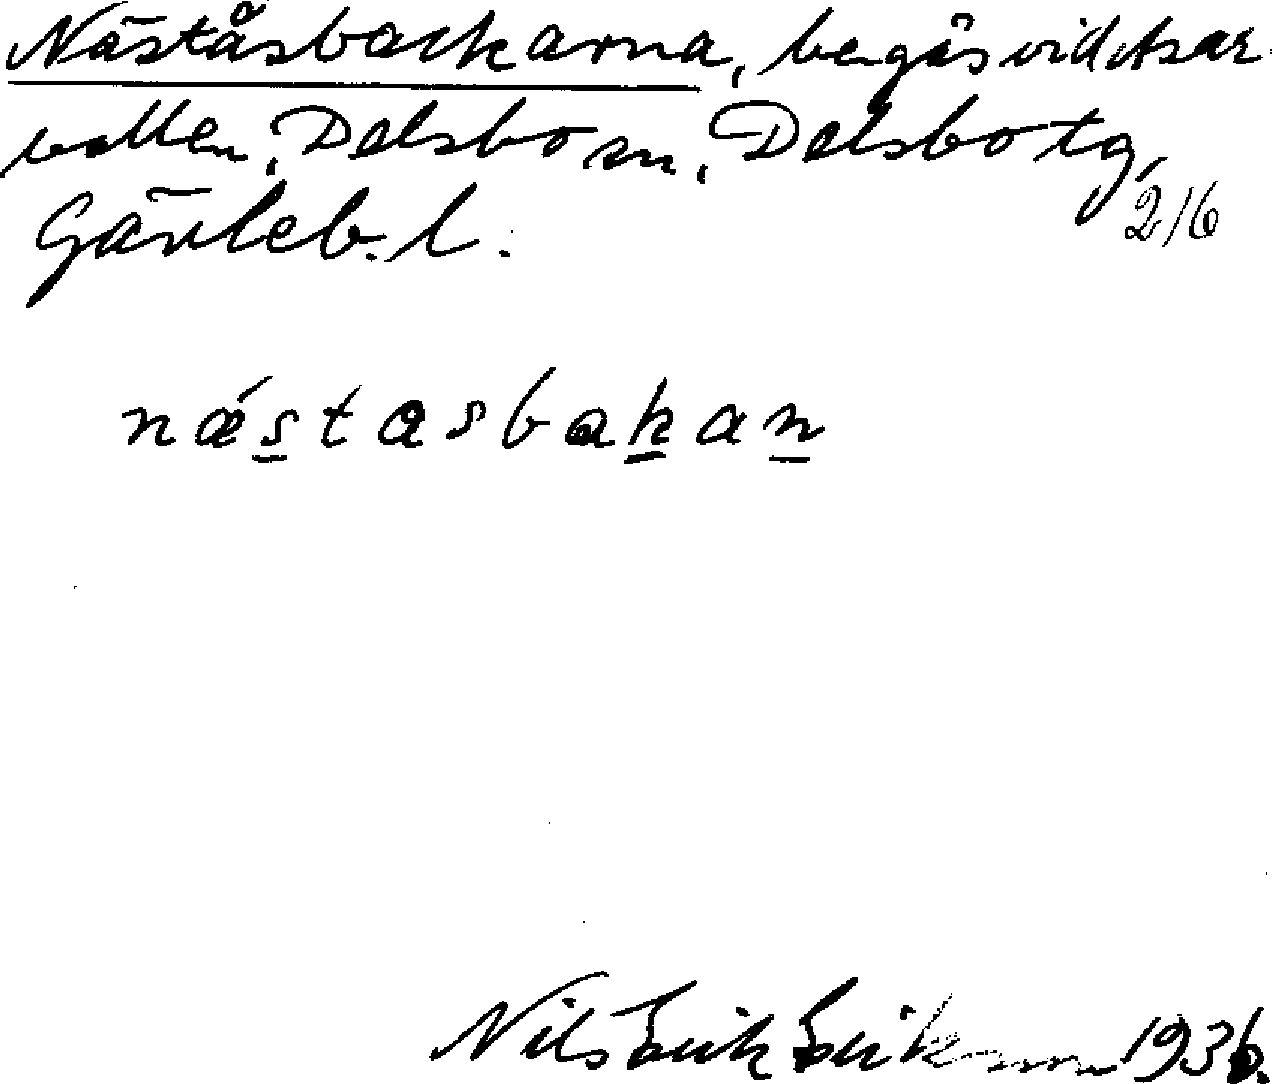 Näståsbackarna, bergås vid Åsar-
vallen, Delsbo sn, Delsbo tg,
Gävleb. l. 2/6
næ´stasbakan
Nils Erik Eriksson 1936.